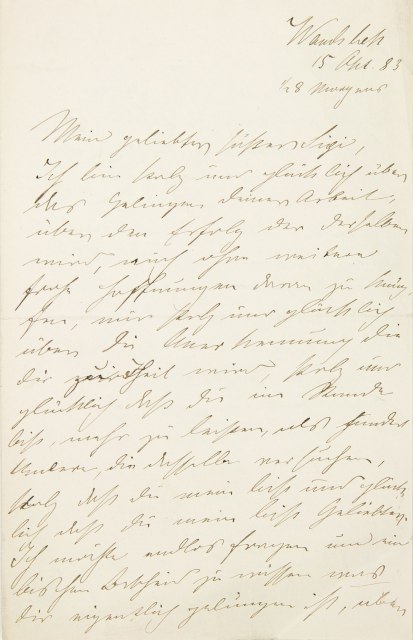 Wandsbek
15 Okt. 83
½8 Morgens
Mein geliebter, süßer Sigi,
Ich bin stolz und glücklich über
das Gelingen deiner Arbeit,
über den Erfolg der derselben
wird, auch ohne weitere
frohe Hoffnungen daran zu knüp
fen, nur stolz und glücklich
über die Anerkennung die
dir zuteil wird, stolz und
glücklich daß du im Stande
bist, mehr zu leisten, als hundert
Andere, die dasselbe versuchen,
stolz daß du mein bist und glück
lich daß du mein bist Geliebter.
Ich möchte endlos fragen um ein
bischen Bescheid zu wissen was
dir eigentlich gelungen ist, über